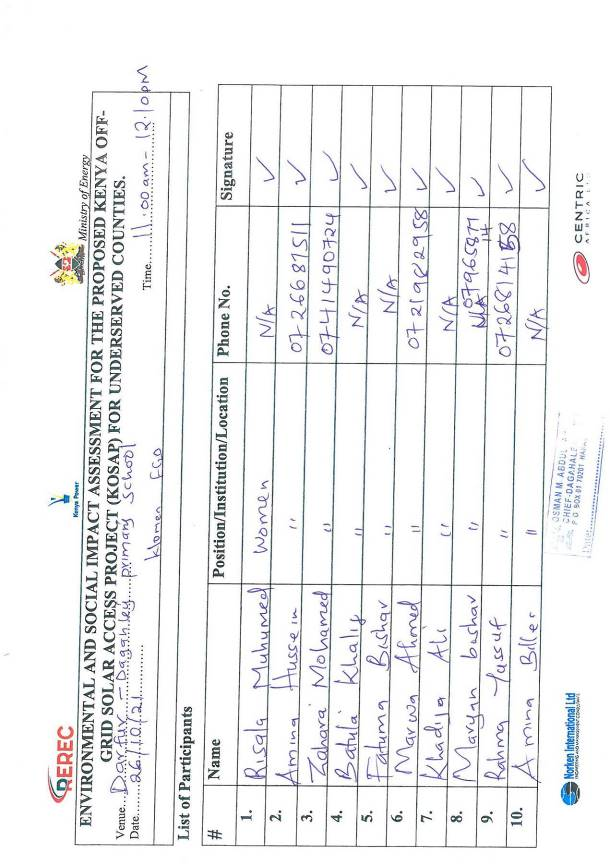 REREC
Kenya Power
Ministry of Energy
ENVIRONMENTAL AND SOCIAL IMPACT ASSESSMENT FOR THE PROPOSED KENYA OFF-
GRID SOLAR ACCESS PROJECT (KOSAP) FOR UNDERSERVED COUNTIES.
Venue... Darfur - Dagahley primary School
Date... 26/10/21 Women FGD Time... 11:00am - 12:10pm
List of Participants
# Name Position/Institution/Location Phone No. Signature
1. Risala Muhumed Women N/A ✓
2. Amina Hussein " 0726687511 ✓
3. Zahara Mohamed " 0741490724 ✓
4. Batula Khalif " N/A ✓
5. Fatuma Bishar " N/A ✓
6. Marwa Ahmed " 0721982958 ✓
7. Khadija Ali " N/A ✓
8. Maryan bashar " N/A ✓
9. Rahma Yussuf " ✓
10. Amina Biller " N/A ✓
Norken International Ltd
OSMAN M. ABDUL
CHIEF-DAGAHALE
P.O. BOX 01 70201
CENTRIC
AFRICA LTD